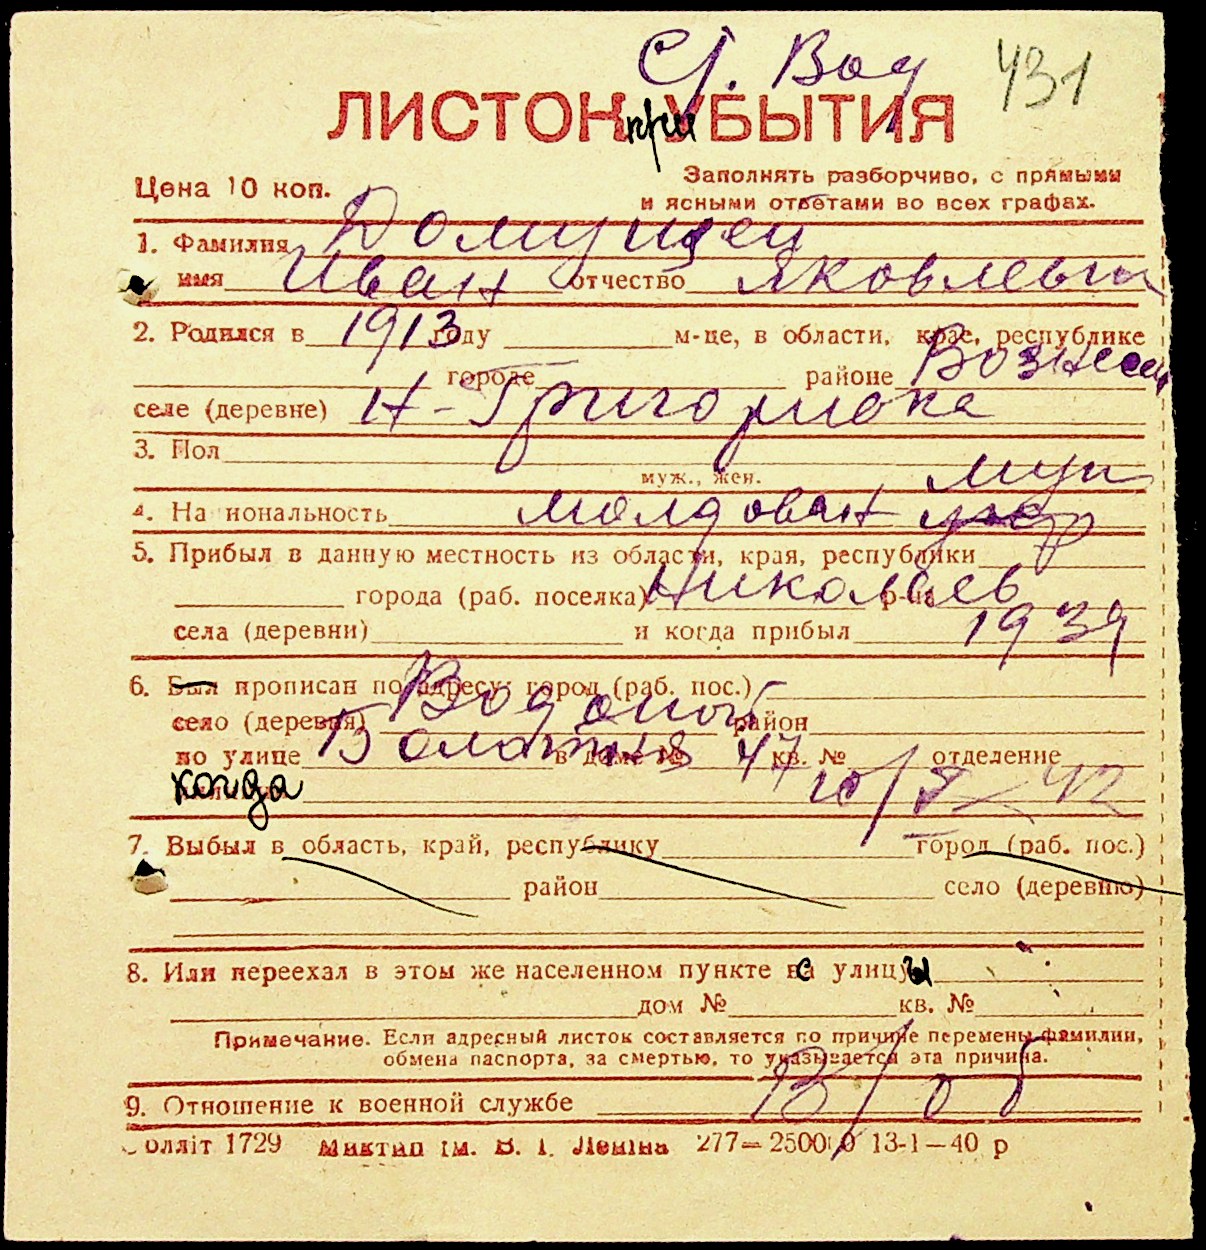 Ст. Вод 431
ЛИСТОК при УБЫТИЯ
Цена 10 коп.
Заполнять разборчиво, с прямыми
и ясными ответами во всех графах.
1. Фамилия Домущей
имя Иван отчество Яковлевич
2. Родился в 1913 году м-це, в области, крае, республике
городе районе Вознесен
селе (деревне) Н-Григориевке
3. Пол
муж., жен. муж
4. На иональность молдован укр
5. Прибыл в данную местность из области, края, республики
города (раб. поселка) Николаев р-на
села (деревни) и когда прибыл 1939
6. Был прописан по адресу: город (раб. пос.)
село (деревня) Водопой район
по улице Болотная в доме № 47 кв. № отделение
когда 10/X 42
7. Выбыл в область, край, республику город (раб. пос.)
район село (деревню)
8. Или переехал в этом же населенном пункте с улицы
дом № кв. №
Примечание. Если адресный листок составляется по причине перемены фамилии,
обмена паспорта, за смертью, то указывается эта причина.
9. Отношение к военной службе В/об
оллiт 1729 Миктип iм. В. I. Ленiна 277—25000 13-1—40 р